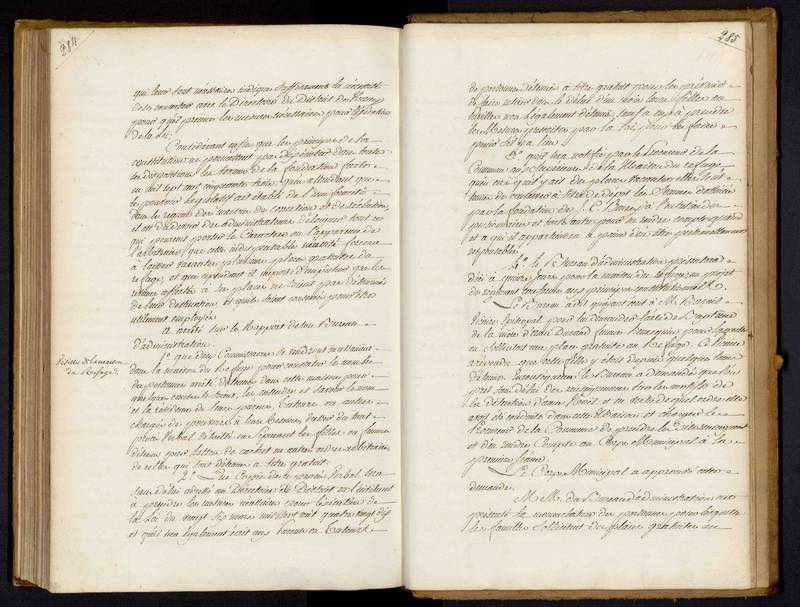 284
qui leur sont nécessaires indique suffisamment la nécessité
de se concerter avec le Directoire du District de Nancy
pour qu'il prenne les mesures nécessaires pour l'exécution
de la Loi;
Considérant enfin que les principes de la
constitution ne permettent pas d'exécuter dans toutes
ses dispositions les termes de la fondation faite
en mil sept cent cinquante trois, qu'en attendant que
le pouvoir Législatif ait établi de l'uniformité
dans le régime des maisons de correction et de réclusion
il est du devoir des administrateurs d'éloigner tout ce
qui pourroit porter le Caractère ou l'apparence de
l'arbitraire, que cette indispensable nécessité forcera
à laisser vacantes plusieurs places gratuites du
refuge, et que cependant il importe d'empêcher que les
revenus affectés à ces places ne soient pas détournés
de leur destination et qu'ils soient conservés pour être
utilement employés
a arrêté sur le Rapport de son Bureau
d'administration.
Visite de la maison
du Refuge.
1.º que deux Commissaires se rendront incessamment
dans la maison du Refuge pour constater le nombre
des personnes détenues dans cette maison pour
quelque cause ce soient, les entendre et savoir le nom
et la résidence de leurs parens, tuteurs ou autres
chargés de pourvoir à leurs besoins, dresser du tout
procès verbal détaillé en séparant les filles ou femmes
détenues par lettres de cachet ou autres ordres arbitraires
de celles qui sont détenues à titre gratuit.
2.º que Copie de ce procès verbal sera
sans délai adressé au Directoire de District en l'invitant
à prendre les mesures nécessaires pour l'exécution de
la Loi du vingt six mars mil sept cent quatre vingt dix
et qu'il sera également écrit aux Parens ou Tuteurs
285
de personnes détenues à titre gratuit pour les prévenir
de faire retirer dans le délai d'un mois leurs filles ou
pupilles non légalement détenues, sauf à eux à prendre
les Mesures prescrites par la loi, pour les faire
punir s'il y a lieu
3.º qu'il sera notifié par le Procureur de la
Commune aux Supérieures de la Maison du refuge
qu'en cas qu'il y ait des places Vacantes elles seront
tenues de conserver à titre de dépôt les Sommes données
par la fondation de S. C. pour l'entretien des
pensionnaires et toutes autres pour en rendre compte quand
et à qui il appartiendra à peine d'en être personnellement
responsables.
4.º le Bureau d'administration présentera
d'ici à quinze jours pour la maison du refuge un projet
de réglement conforme aux principes constitutionnels.
Le Bureau a dit qu'ayant écrit à M.
Vicaire Episcopal pour lui demander l'acte de Baptême
de la nièce d'Anne Durand femme pour laquelle
on Sollicitoit une place gratuite au Refuge. Ce Vicaire
a répondu que cette fille y étoit depuis quelque tems
détenue. En conséquence le Bureau a demandé que l'on
prît sans délai des renseignemens sur les motifs de
la détention d'Anne et en vertu de quel ordre elle
avoit été conduite dans cette Maison et charger le
Procureur de la Commune de prendre les Eclaircissemens
et d'en rendre Compte au Corps Municipal à la
première séance.
Le Corps Municipal a approuvé cette
demande.
M.M. du Bureau d'administration ont
présenté la nomenclature des personnes pour lesquelles
les familles sollicitent des places gratuites au